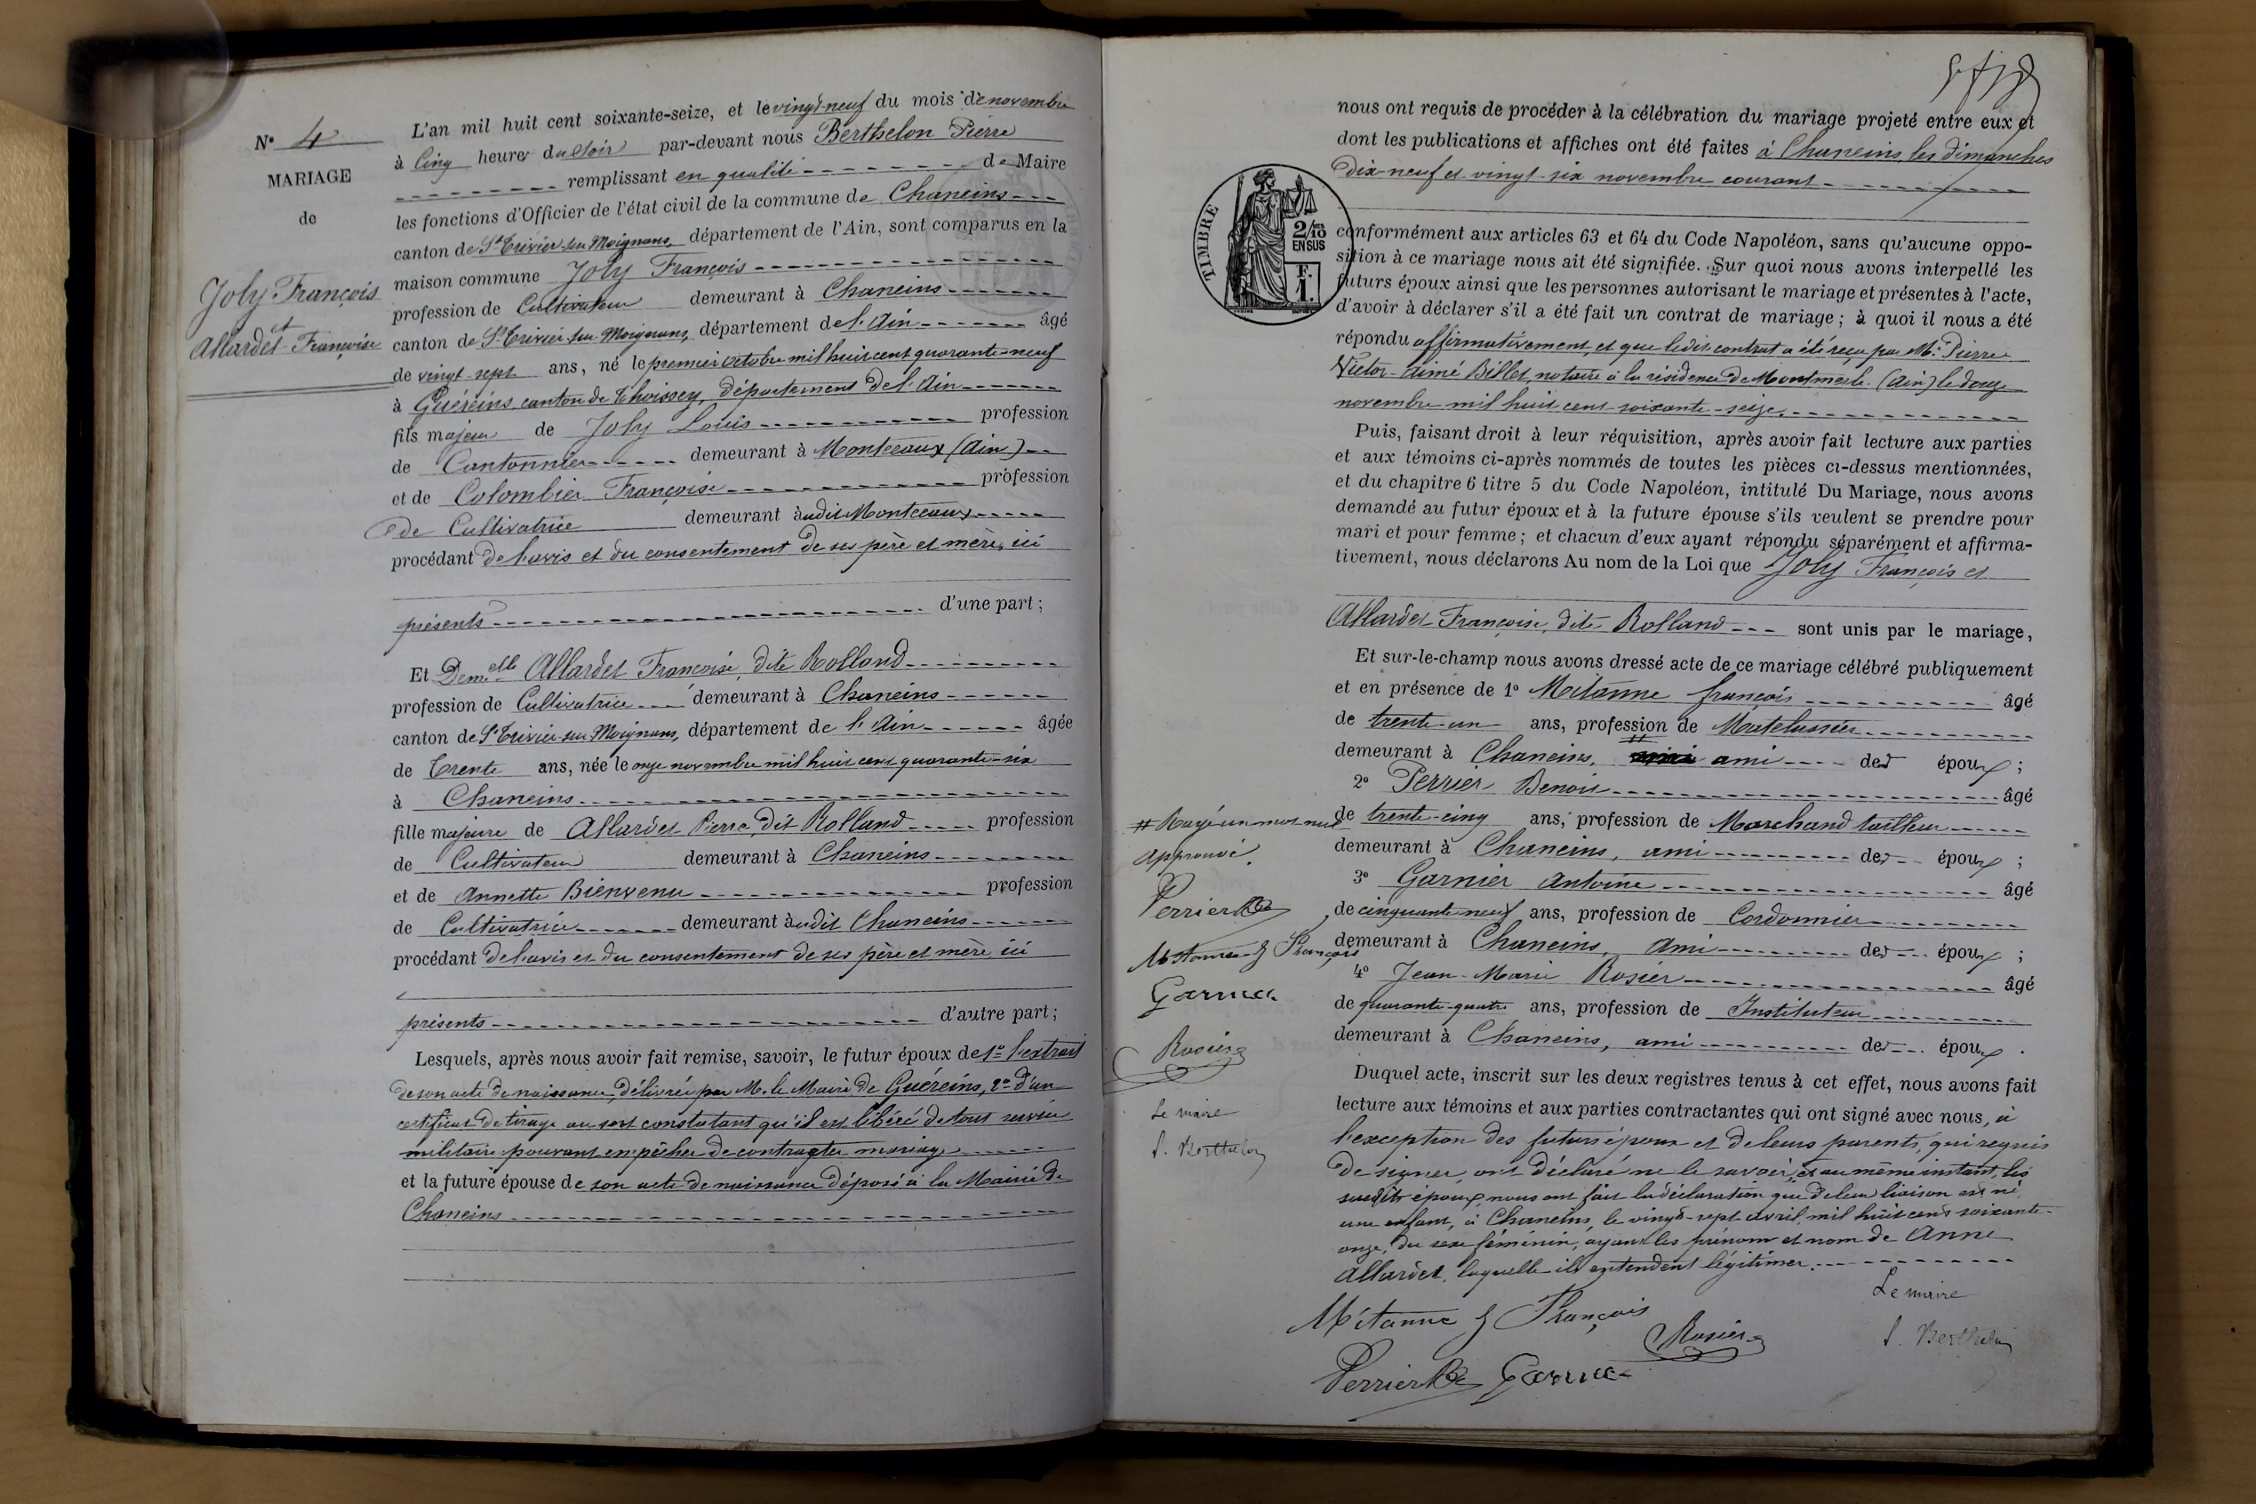 N° 4
MARIAGE
de
Joly François
et
Allardet Françoise
L'an mil huit cent soixante-seize, et le vingt-neuf du mois de novembre
à Cinq heures du Soir par-devant nous Berthelon Pierre
remplissant en qualité de Maire
les fonctions d'Officier de l'état civil de la commune de Chaneins
canton de St Trivier-sur-Moignans, département de l'Ain, sont comparus en la
maison commune Joly François
profession de Cultivateur demeurant à Chaneins
canton de St Trivier-sur-Moignans, département de l'Ain âgé
de vingt-sept ans, né le premier octobre mil huit cent quarante-neuf
à Guéreins, canton de Thoissey, département de l'Ain
fils majeur de Joly Louis profession
de Cantonnier demeurant à Montceaux (Ain)
et de Colombier Françoise profession
de Cultivatrice demeurant audit Montceaux
procédant de l'avis et du consentement de ses père et mère, ici
présents d'une part ;
Et Demelle Allardet Françoise, dite Rolland
profession de Cultivatrice demeurant à Chaneins
canton de St Trivier-sur-Moignans, département de l'Ain âgée
de Trente ans, née le onze novembre mil huit cent quarante-six
à Chaneins
fille majeure de Allardet Pierre, dit Rolland profession
de Cultivateur demeurant à Chaneins
et de Annette Bienvenu profession
de Cultivatrice demeurant audit Chaneins
procédant de l'avis et du consentement de ses père et mère, ici
présents d'autre part ;
Lesquels, après nous avoir fait remise, savoir, le futur époux de 1° l'extrait
de son acte de naissance, délivrée par M. le Maire de Guéreins, 2° d'un
certificat de tirage au sort constatant qu'il est libéré de tout service
militaire pouvant empêcher de contracter mariage
et la future épouse de son acte de naissance déposé à la Mairie de
Chaneins
nous ont requis de procéder à la célébration du mariage projeté entre eux et
dont les publications et affiches ont été faites à Chaneins les dimanches
Dix-neuf et vingt-six novembre courant
TIMBRE
2/10
EN SUS
F.
1.
conformément aux articles 63 et 64 du Code Napoléon, sans qu'aucune oppo-
sition à ce mariage nous ait été signifiée. Sur quoi nous avons interpellé les
futurs époux ainsi que les personnes autorisant le mariage et présentes à l'acte,
d'avoir à déclarer s'il a été fait un contrat de mariage ; à quoi il nous a été
répondu affirmativement, et que ledit contrat a été reçu par Me Pierre
Victor-Aimé Billet, notaire à la résidence de Montmerle (Ain) le douze
novembre mil huit cent soixante-seize.
Puis, faisant droit à leur réquisition, après avoir fait lecture aux parties
et aux témoins ci-après nommés de toutes les pièces ci-dessus mentionnées,
et du chapitre 6 titre 5 du Code Napoléon, intitulé Du Mariage, nous avons
demandé au futur époux et à la future épouse s'ils veulent se prendre pour
mari et pour femme ; et chacun d'eux ayant répondu séparément et affirma-
tivement, nous déclarons Au nom de la Loi que Joly François et
Allardet Françoise, dite Rolland sont unis par le mariage,
Et sur-le-champ nous avons dressé acte de ce mariage célébré publiquement
et en présence de 1° Mitanne françois âgé
de trente-un ans, profession de Matelassier
demeurant à Chaneins, # ami des époux ;
2° Perrier Benoit âgé
de trente-cinq ans, profession de Marchand tailleur
demeurant à Chaneins, ami des époux ;
3° Garnier Antoine âgé
de cinquante-neuf ans, profession de Cordonnier
demeurant à Chaneins, ami des époux ;
4° Jean-Marie Rosier âgé
de quarante-quatre ans, profession de Instituteur
demeurant à Chaneins, ami des époux.
Duquel acte, inscrit sur les deux registres tenus à cet effet, nous avons fait
lecture aux témoins et aux parties contractantes qui ont signé avec nous, à
l'exception des futurs époux et de leurs parents, qui requis
de signer, ont déclaré ne le savoir, et au même instant, les
susdits époux, nous ont fait la déclaration que de leur liaison est né
une enfant, à Chaneins, le vingt-sept avril, mil huit cent soixante-
onze, du sexe féminin, ayant les prénom et nom de Anne
Allardet, laquelle ils entendent légitimer.
# Rayé un mot nul
approuvé.
Perrier
Mitanne François
Garnier
Rosier
Le maire
P. Berthelon
Mitanne François
Rosier
Le maire
P. Berthelon
Perrier
Garnier